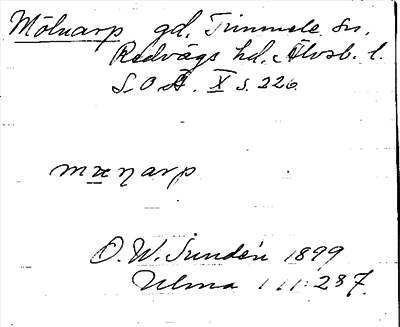 Mölnarp gd, Timmele sn,
Redvägs hd, Älvsb. l.
S.O.Ä. X s. 226.
O. W. Sundén 1899
Ulma 111:287.